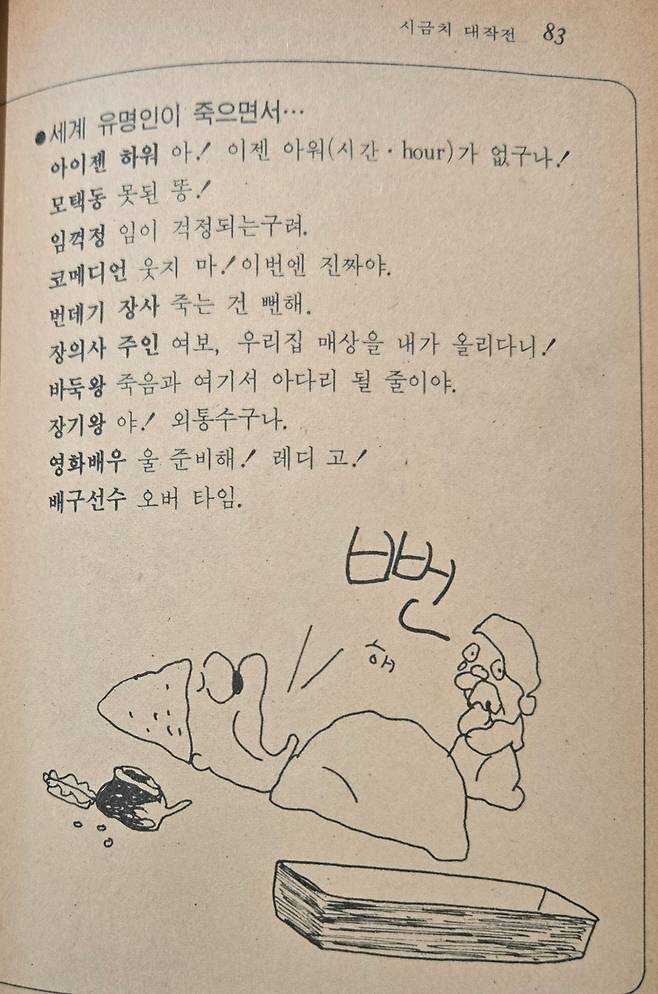 시금치 대작전 83
●세계 유명인이 죽으면서…
아이젠 하워 아! 이젠 아워(시간·hour)가 없구나!
모택동 못된 똥!
임꺽정 임이 걱정되는구려.
코메디언 웃지 마! 이번엔 진짜야.
번데기 장사 죽는 건 뻔해.
장의사 주인 여보, 우리집 매상을 내가 올리다니!
바둑왕 죽음과 여기서 아다리 될 줄이야.
장기왕 야! 외통수구나.
영화배우 울 준비해! 레디 고!
배구선수 오버 타임.
뻔
해